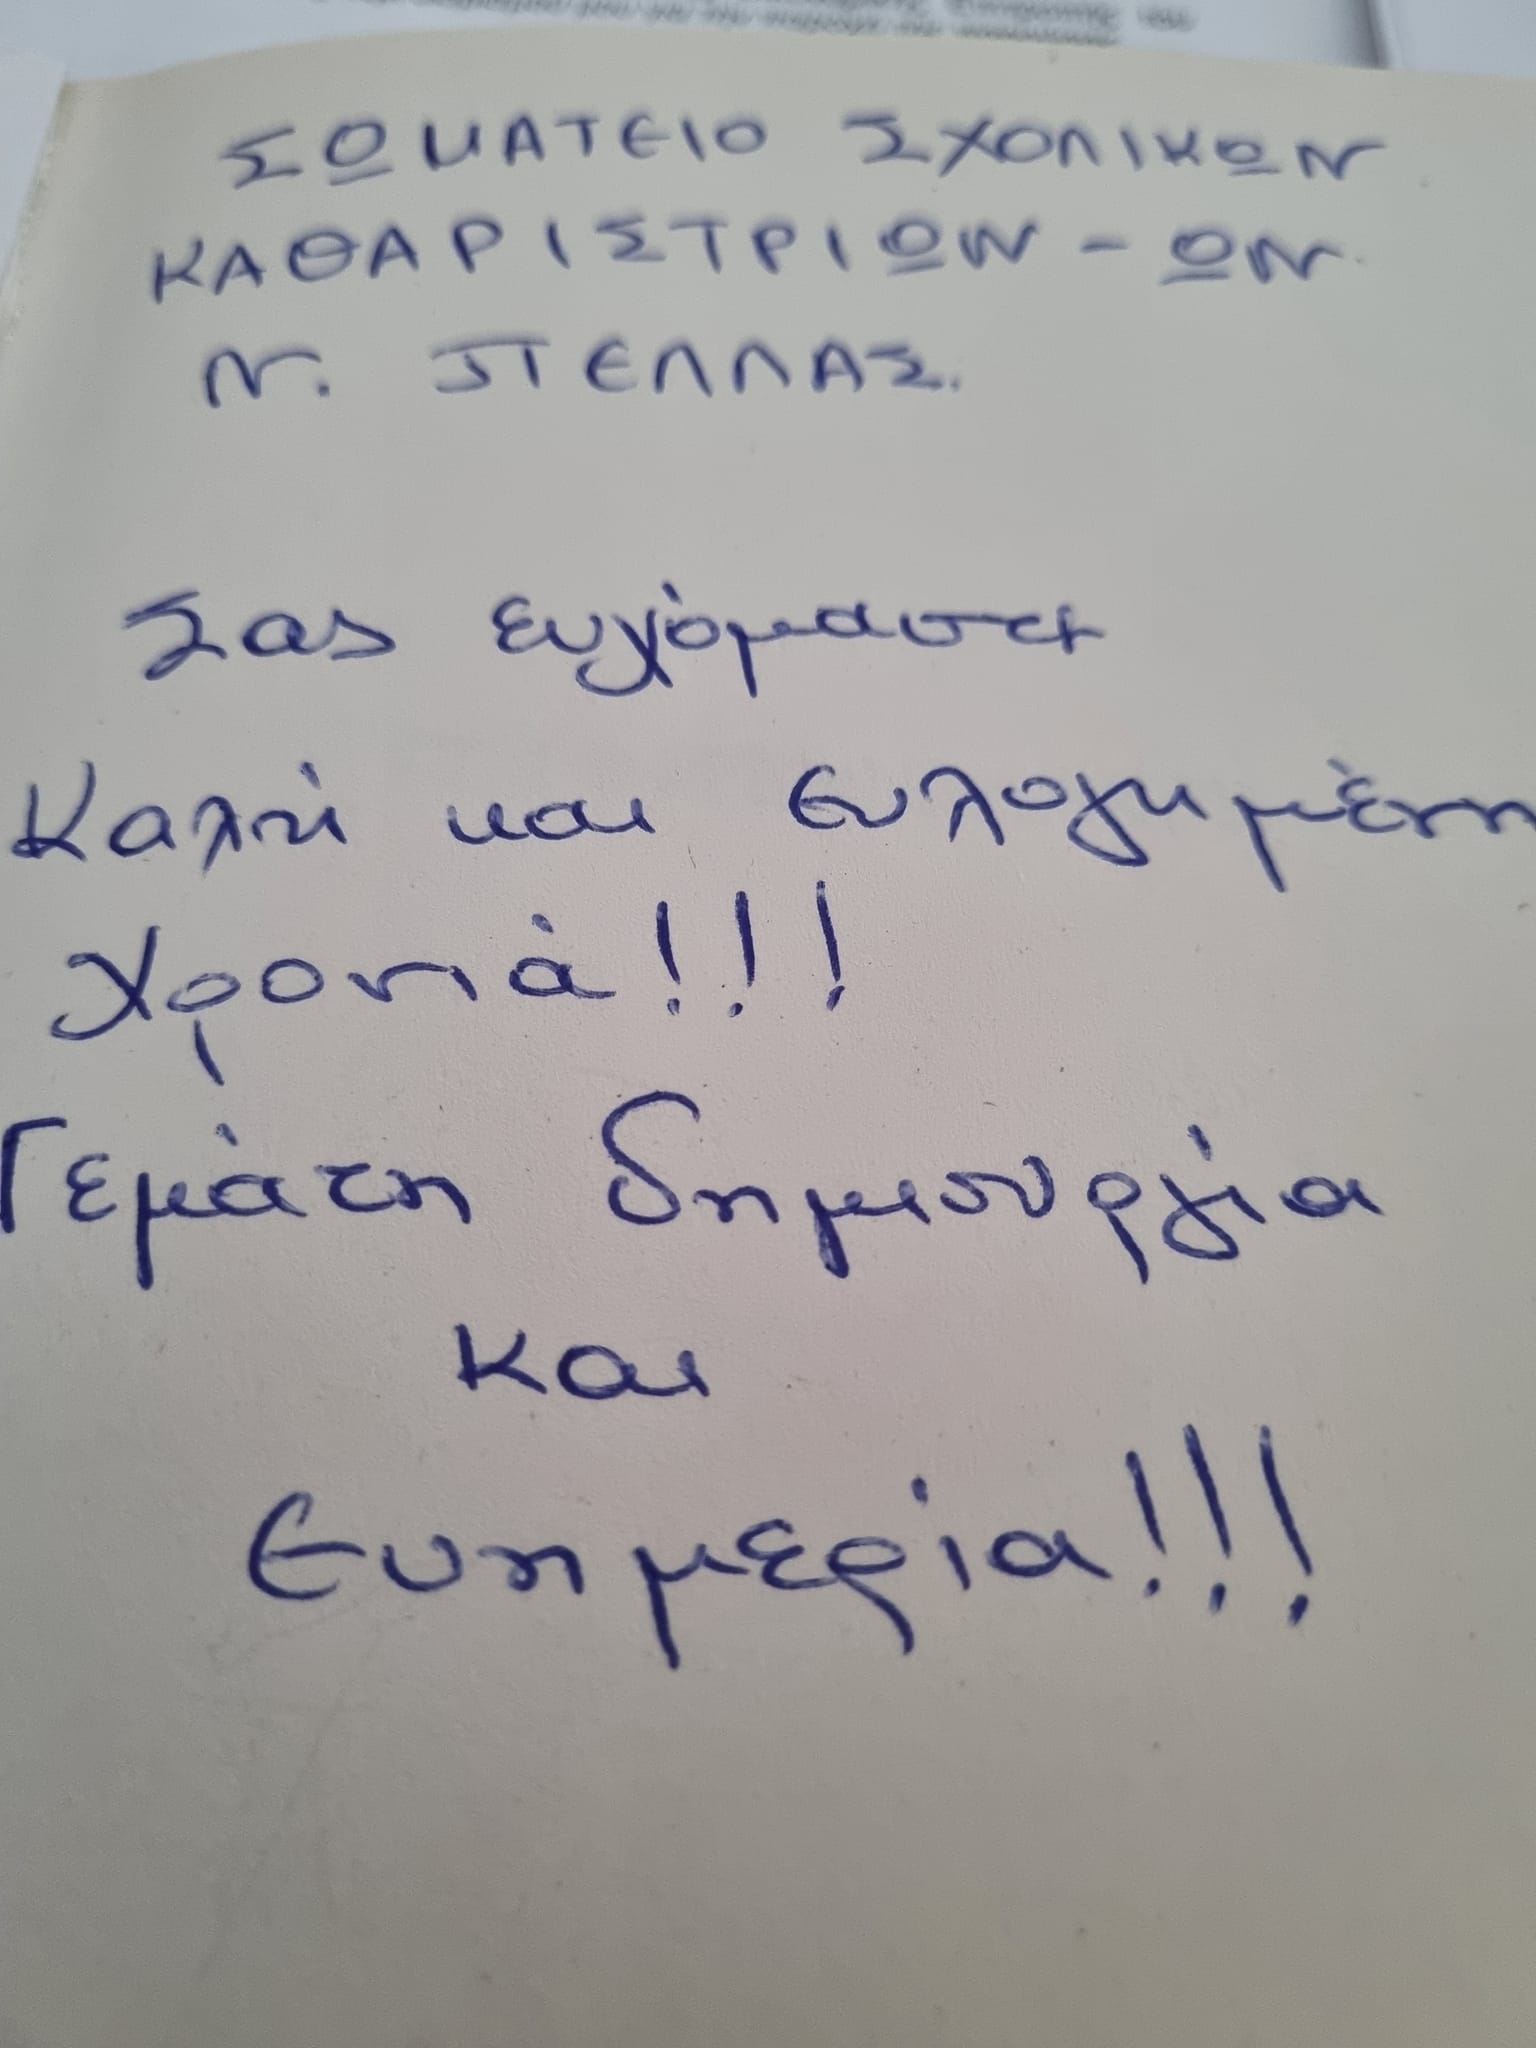 ΣΩΜΑΤΕΙΟ ΣΧΟΛΙΚΩΝ
ΚΑΘΑΡΙΣΤΡΙΩΝ - ΩΝ
Ν. ΠΕΛΛΑΣ.
Σας ευχόμαστε
Καλή και ευλογημένη
Χρονιά!!!
Γεμάτη δημιουργία
και
Ευημερία!!!